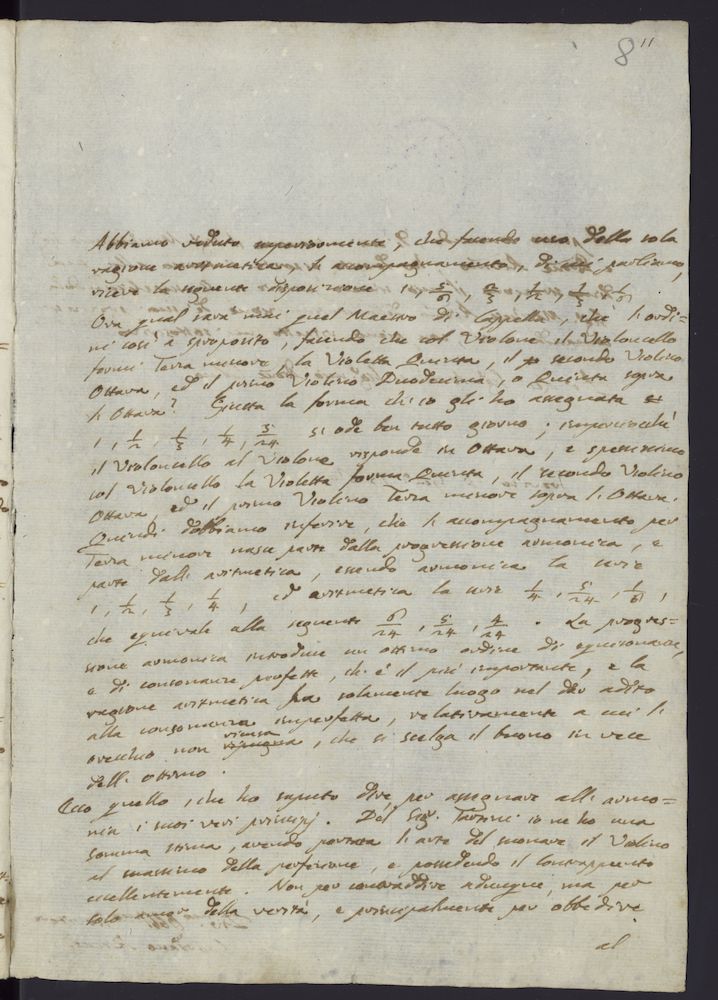 8 11
Abbiamo veduto superiormente, che facendo uso della sola
ragione aritmetica l'accompagnamento, di cui parliamo,
riceve la seguente disposizione 1, 5/6, 2/3, 1/2, 1/3
Ora qual sarà mai quel Maestro di Cappella, che l'ordi=
ni così a sproposito, facendo che col Violone il Violoncello
formi Terza minore, la Violetta Quinta, il secondo Violino
Ottava, ed il primo Violino Duodecima, o Quinta sopra
l'Ottava? Giusta la forma ch'io gli ho assegnata
1, 1/2, 1/3, 1/4, 5/24 si ode ben tutto giorno; imperciocchè
il Violoncello al Violone risponde in Ottava, e spessissimo
col Violoncello la Violetta forma Quinta, il secondo Violino
Ottava, ed il primo Violino Terza minore sopra l'Ottava.
Quindi dobbiamo inferire, che l'accompagnamento per
Terza minore nasce parte dalla progressione armonica, e
parte dall'aritmetica, essendo armonica la serie
1, 1/2, 1/3, 1/4, ed aritmetica la serie 1/4, 5/24, 1/6,
che equivale alla seguente 6/24, 5/24, 4/24. La progres=
sione armonica introduce un ottimo ordine di equisonanze,
e di consonanze perfette, ch'è il più importante, e la
ragione aritmetica ha solamente luogo nel dar adito
alla consonanza imperfetta, relativamente a cui l'
orecchio non ricusa, che si scelga il buono in vece
dell'ottimo.
Ecco quello, che ho saputo dire per assegnare all'armo=
nia i suoi veri principj. Del Sigr. Tartini io ne ho una
somma stima, avendo portata l'arte del suonare il Violino
al massimo della perfezione, e possedendo il Contrappunto
eccellentemente. Non per contraddire adunque, ma per
solo amor della verità, e principalmente per obbedire
al